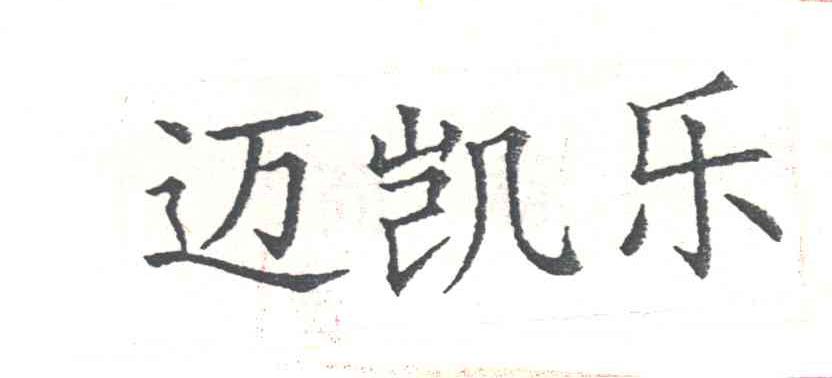 迈凯乐